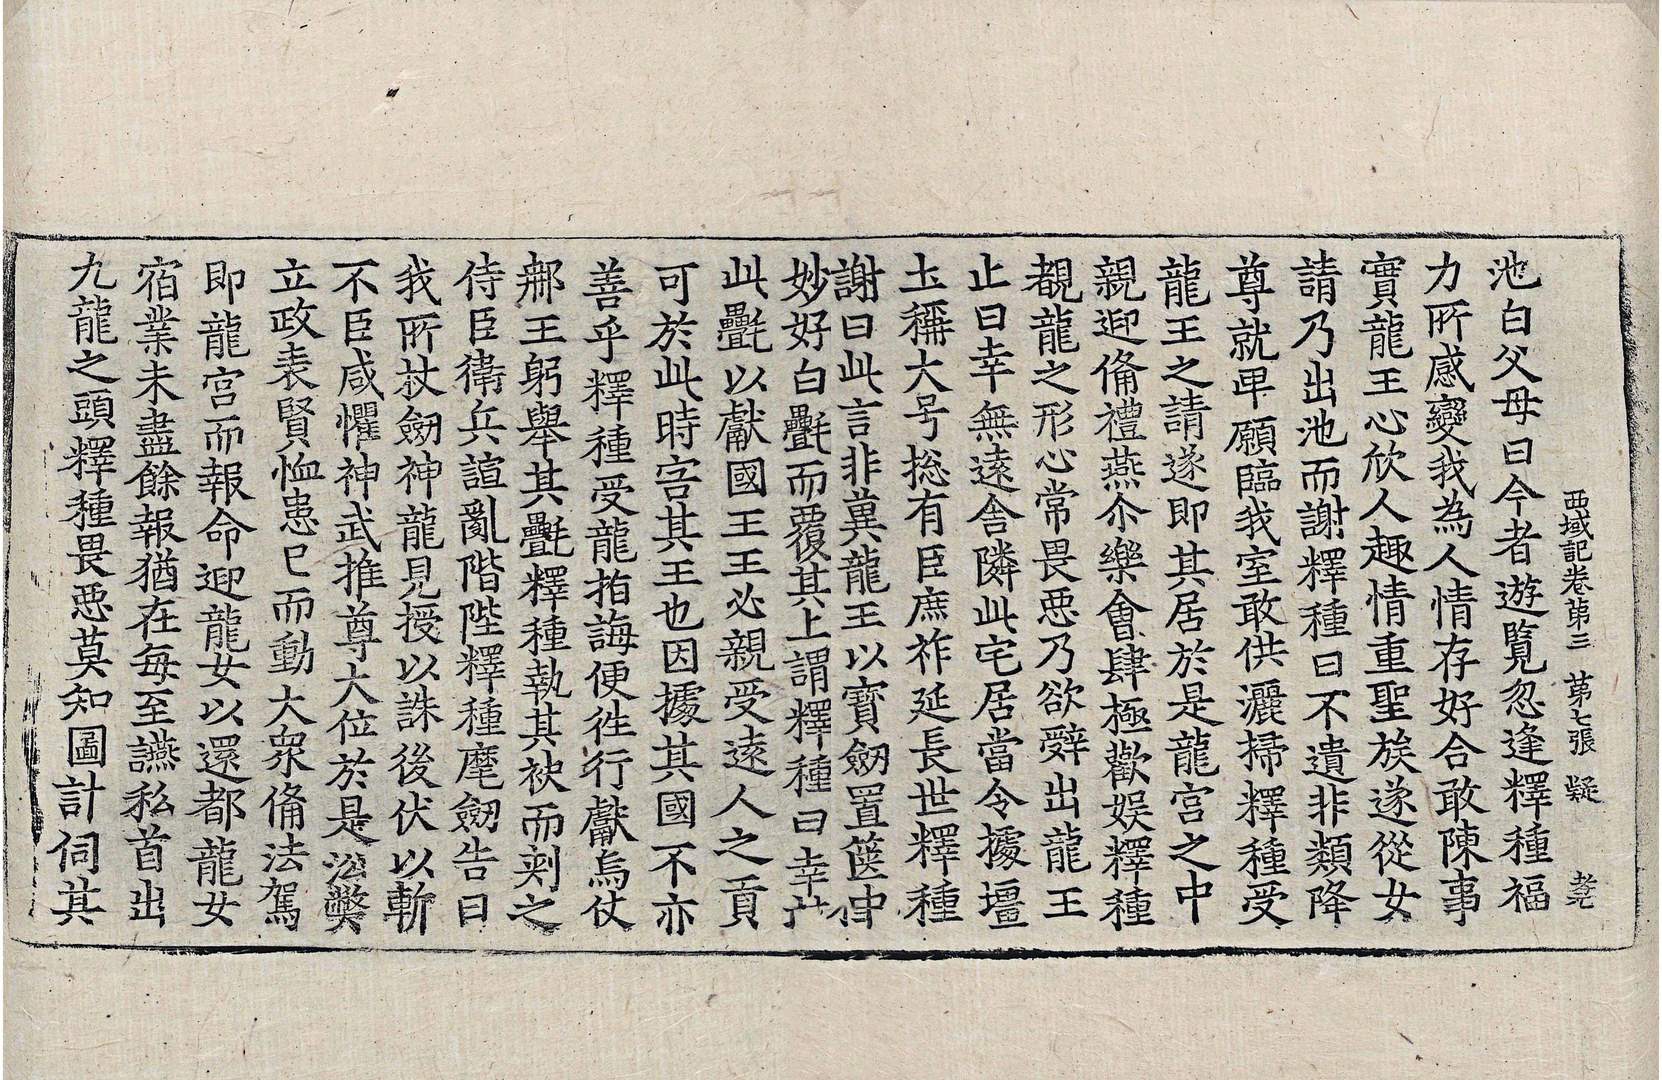 西域記卷第三 第七張 疑
池白父母曰今者遊覽忽逢釋種福
力所感變我為人情存好合敢陳事
實龍王心欣人趣情重聖族遂從女
請乃出池而謝釋種曰不遺非類降
尊就卑願臨我室敢供灑掃釋種受
龍王之請遂即其居於是龍宮之中
親迎俻禮燕尒樂會肆極歡娛釋種
覩龍之形心常畏惡乃欲辭出龍王
止曰幸無遠舍隣此宅居當令據壃
土稱大号捴有臣庶祚延長世釋種
謝曰此言非兾龍王以寶劒置篋中
妙好白㲲而覆其上謂釋種曰幸
此㲲以獻國王王必親受遠人之貢
可於此時害其王也因據其國不亦
善乎釋種受龍指誨便徃行獻烏仗
那王躬舉其㲲釋種執其袂而刾之
侍臣衞兵諠亂階陛釋種麾劒告曰
我所杖劒神龍見授以誅後伏以斬
不臣咸懼神武推尊大位於是㳂弊
立政表賢恤患已而動大衆俻法駕
即龍宮而報命迎龍女以還都龍女
宿業未盡餘報猶在每至讌私首出
九龍之頭釋種畏惡莫知圖計伺其